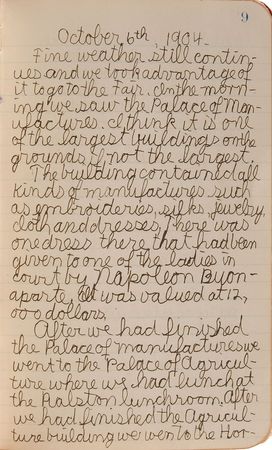 9
October 6th, 1904.
Fine weather still contin-
ues and we took advantage of
it to go to the Fair. In the morn-
ing we saw the Palace of Man-
ufactures. I think it is one
of the largest buildings on the
grounds if not the largest.
The building contained all
kinds of manufactures such
as embroideries, silks, jewelry,
cloth and dresses, There was
one dress there that had been
given to one of the ladies in
court by Napoleon Buon-
aparte, It was valued at 12,
000 dollars.
After we had finished
the Palace of manufactures we
went to the Palace of Agricul-
ture where we had lunch at
the Ralston lunchroom. After
we had finished the Agricul-
ture building we went to the Hor-